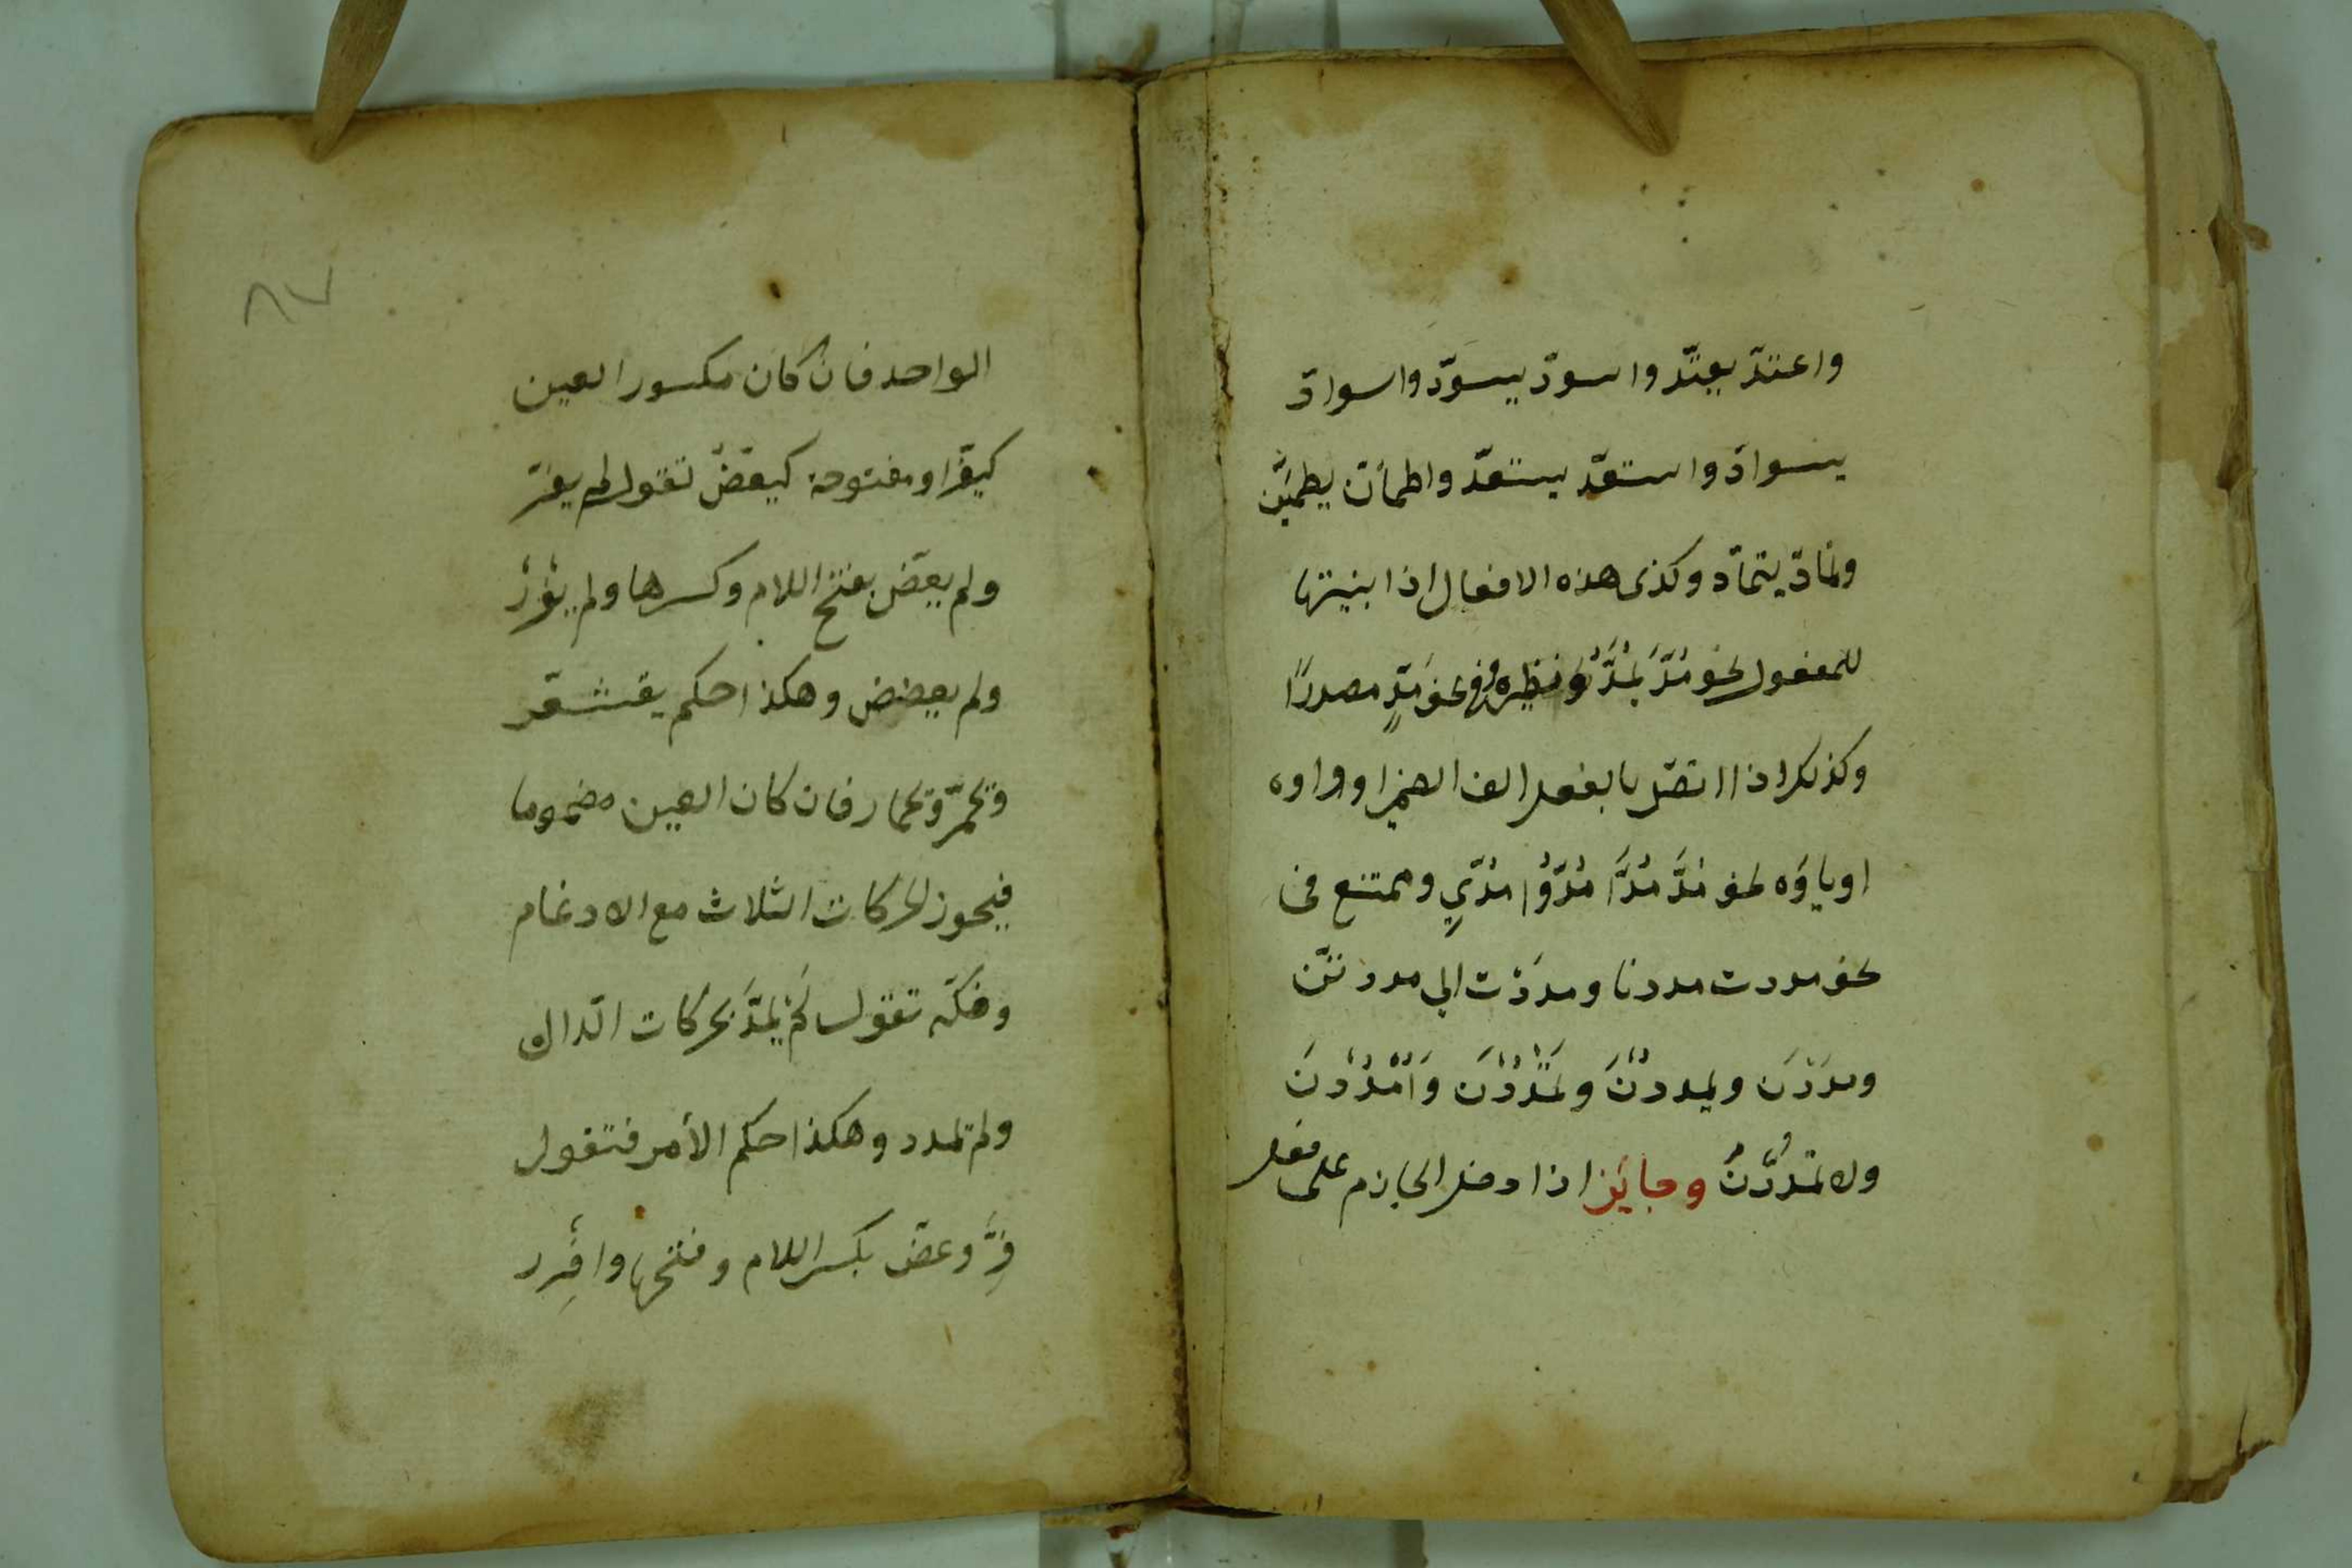 واعتدّ يعتدّ واسودّ يسودّ واسوادّ
يسوادّ واستعدّ يستعدّ واطمأنّ يطمئنّ
وتمادّ يتمادّ وكذى هذه الافعال اذا بنيتها
للمفعول نحو مُدَّ يُمَدُّ ونظيره وفى نحو مَدٍّ مصدرًا
وكذلك اذا اتصّل بالفعل الف الضمير او واوه
اوياؤه نحو مُدَّ مُدَّا مُدّوُا مُدّيِ وممتنع فى
نحو مددت مددنا ومدَدْت الي مددتنّ
ومدَدْنَ ويمددْنَ وتَمْدُدْنَ وَاُمْدُدْنَ
ولا تمْدُدْنَ وجايز اذا دخل الجازم على فعل
٨٧
الواحد فان كان مكسور العين
كيفّر او مفتوحة كيعَضّ تقول لم يفرّ
ولم يعضّ بفتح اللام وكسرها ولم يفْرِرْ
ولم يعضض وهكذا حكم يقشعّر
وتحمرّ وتحمار فان كان العين مضموما
فيجوز الحركات الثلاث مع الادغام
وفكّه تقول لَمْ يمُدَّ بحركات الدّال
ولم تمدد وهكذا حكم الأمر فتقول
فِرَّ وعضّ بكسر اللام وفتحها وافْرِر